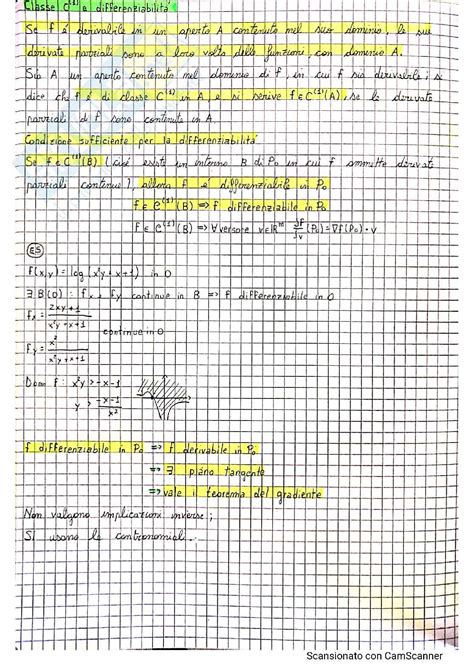 Classe C⁽¹⁾ e differenziabilità
Se f è derivabile in un aperto A contenuto nel suo dominio, le sue
derivate parziali sono a loro volta delle funzioni, con dominio A.
Sia A un aperto contenuto nel dominio di f, in cui f sia derivabile; si
dice che f è di classe C⁽¹⁾ in A, e si scrive f∈C⁽¹⁾(A), se le derivate
parziali di f sono continue in A.
Condizione sufficiente per la differenziabilità
Se f∈C⁽¹⁾(B) (cioè esiste un intorno B di P₀ in cui f ammette derivate
parziali continue), allora f è differenziabile in P₀
f∈C⁽¹⁾(B) => f differenziabile in P₀
f∈C⁽¹⁾(B) => ∀ versore v∈ℝⁿ ∂f/∂v (P₀)=∇f(P₀)·v
ES
f(x,y) = log(x²y+x+1) in 0
∃ B(0) : fx, fy continue in B => f differenziabile in 0
fx = 2xy+1 / x²y+x+1
continue in 0
fy = x² / x²y+x+1
Dom f: x²y > -x-1
y > -x-1 / x²
f differenziabile in P₀ => f derivabile in P₀
=> ∃ piano tangente
=> vale il teorema del gradiente
Non valgono implicazioni inverse;
Si usano le contronomiali.
Scansionato con CamScanner